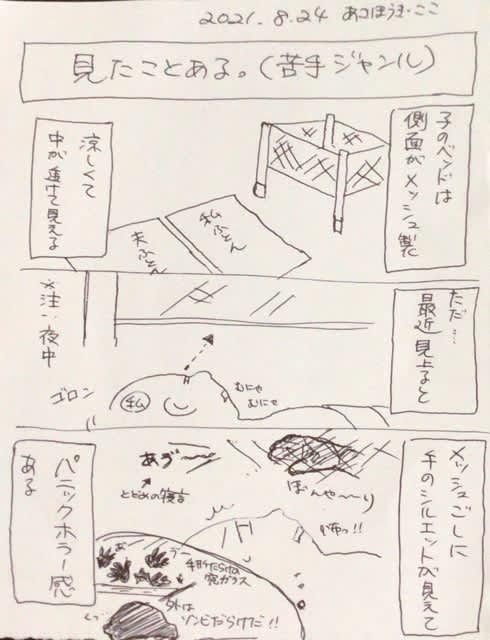 2021.8.24 あコほうま・ここ
見たことある。(苦手ジャンル)
子のベッドは
側面がメッシュ製
涼しくて
中が透けて見える
私ふとん
夫ふとん
ただ…
最近見上ると
※注:夜中
ゴロン
私
むにゃ
むにゃ
メッシュごしに
手のシルエットが見えて
ぼんや〜り
あゔ〜〜
↑
とどめの寝言
怖っ!!
パニックホラー感
ある
手形だらけの
窓ガラス
外は
ゾンビだらけだ!!